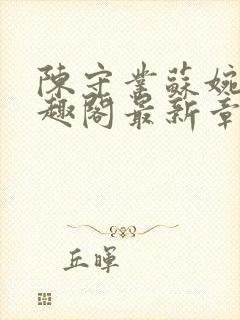 陳守業蘇婉
趣閣最新章
丘暉